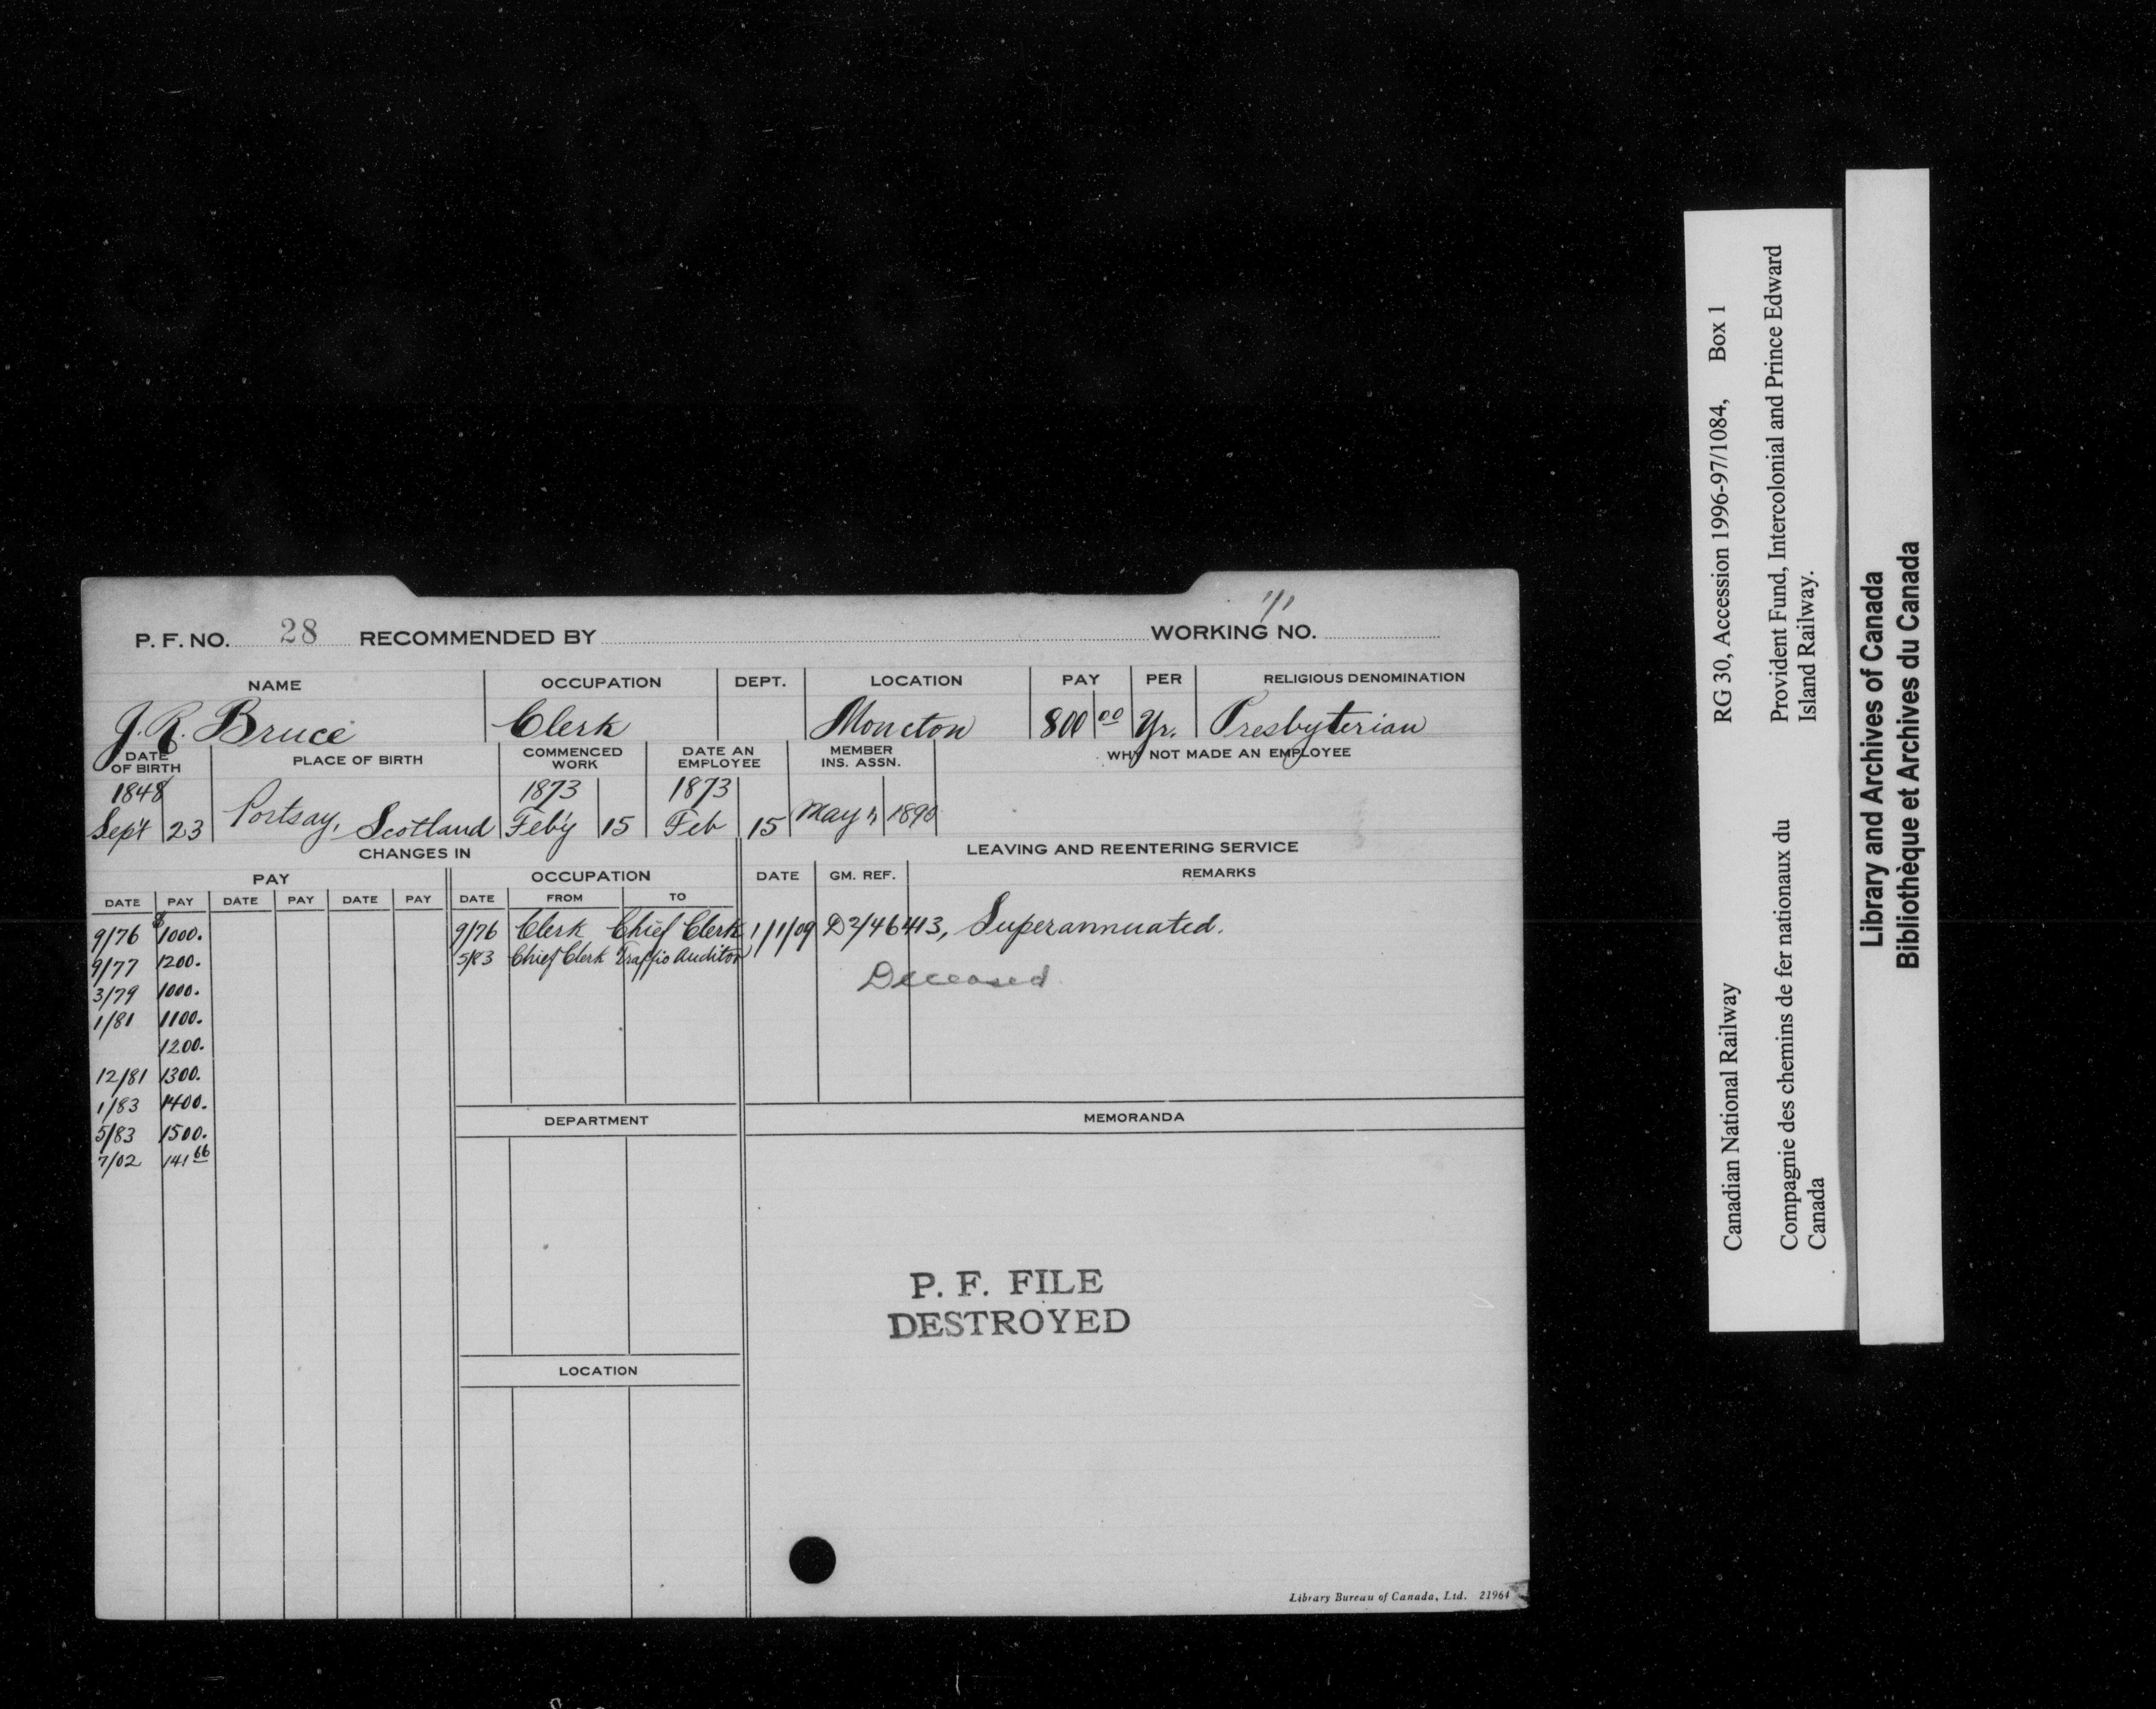 P. F. NO. 28 RECOMMENDED BY WORKING NO.
NAME OCCUPATION DEPT. LOCATION PAY PER RELIGIOUS DENOMINATION
J. R. Bruce Clerk Moncton 800 00 Yr. Presbyterian
DATE OF BIRTH PLACE OF BIRTH COMMENCED WORK DATE AN EMPLOYEE MEMBER INS. ASSN. WHY NOT MADE AN EMPLOYEE
1848 1873 1873
Sept 23 Portsay, Scotland Feb'y 15 Feb 15 May 1890
CHANGES IN LEAVING AND REENTERING SERVICE
PAY OCCUPATION DATE GM. REF. REMARKS
DATE PAY DATE PAY DATE PAY DATE FROM TO
9/76 $1000. 9/76 Clerk Chief Clerk 1/1/09 D2/46413, Superannuated.
9/77 1200. 5/83 Chief Clerk Traffic Auditor
3/79 1000. Deceased
1/81 1100.
1200.
12/81 1300.
1/83 1400.
5/83 1500.
7/02 141 66
DEPARTMENT MEMORANDA
P. F. FILE
DESTROYED
LOCATION
Library Bureau of Canada, Ltd. 21964
Canadian National Railway RG 30, Accession 1996-97/1084, Box 1
Compagnie des chemins de fer nationaux du Provident Fund, Intercolonial and Prince Edward
Canada Island Railway.
Library and Archives of Canada
Bibliothèque et Archives du Canada